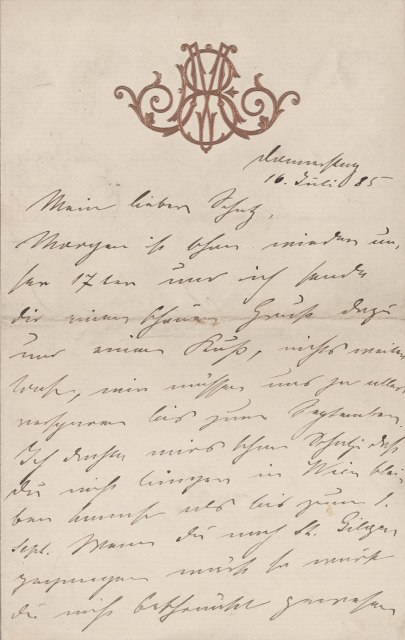 Donnerstag
16. Juli 85
Mein lieber Schatz,
Morgen is schon wieder un-
ser 17ter und ich sende
dir einen schönen Gruß dazu
und einen Kuß, nichts weiter
wir müssen uns ja alles
ersparen bis zum September.
Ich dachte mirs schon Schatzi daß
du nicht länger in Wien blei-
ben kannst als bis zum 1.
Sept. Wenn du nach St. Gilgen
gegangen wärst so wärst
du nicht gewesen